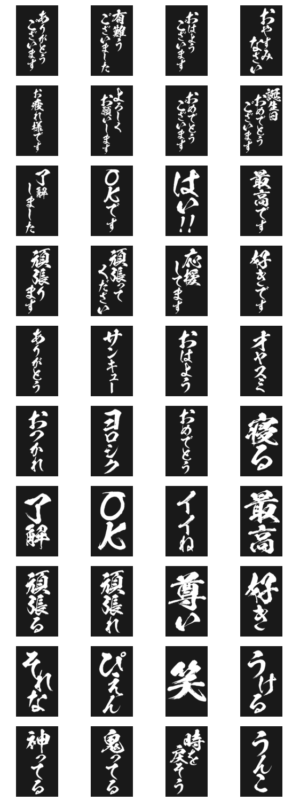 ありがとう
ございます
有難う
ございました
おはよう
ございます
おやすみ
なさい
お疲れ様です
よろしく
お願いします
おめでとう
ございます
誕生日
おめでとう
ございます
了解
しました
OKです
はい!!
最高です
頑張り
ます
頑張って
ください
応援
してます
好きです
ありがとう
サンキュー
おはよう
オヤスミ
おつかれ
ヨロシク
おめでとう
寝る
了解
OK
イイね
最高
頑張る
頑張れ
尊い
好き
それな
ぴえん
笑
うける
神ってる
鬼ってる
時を
戻そう
うんこ